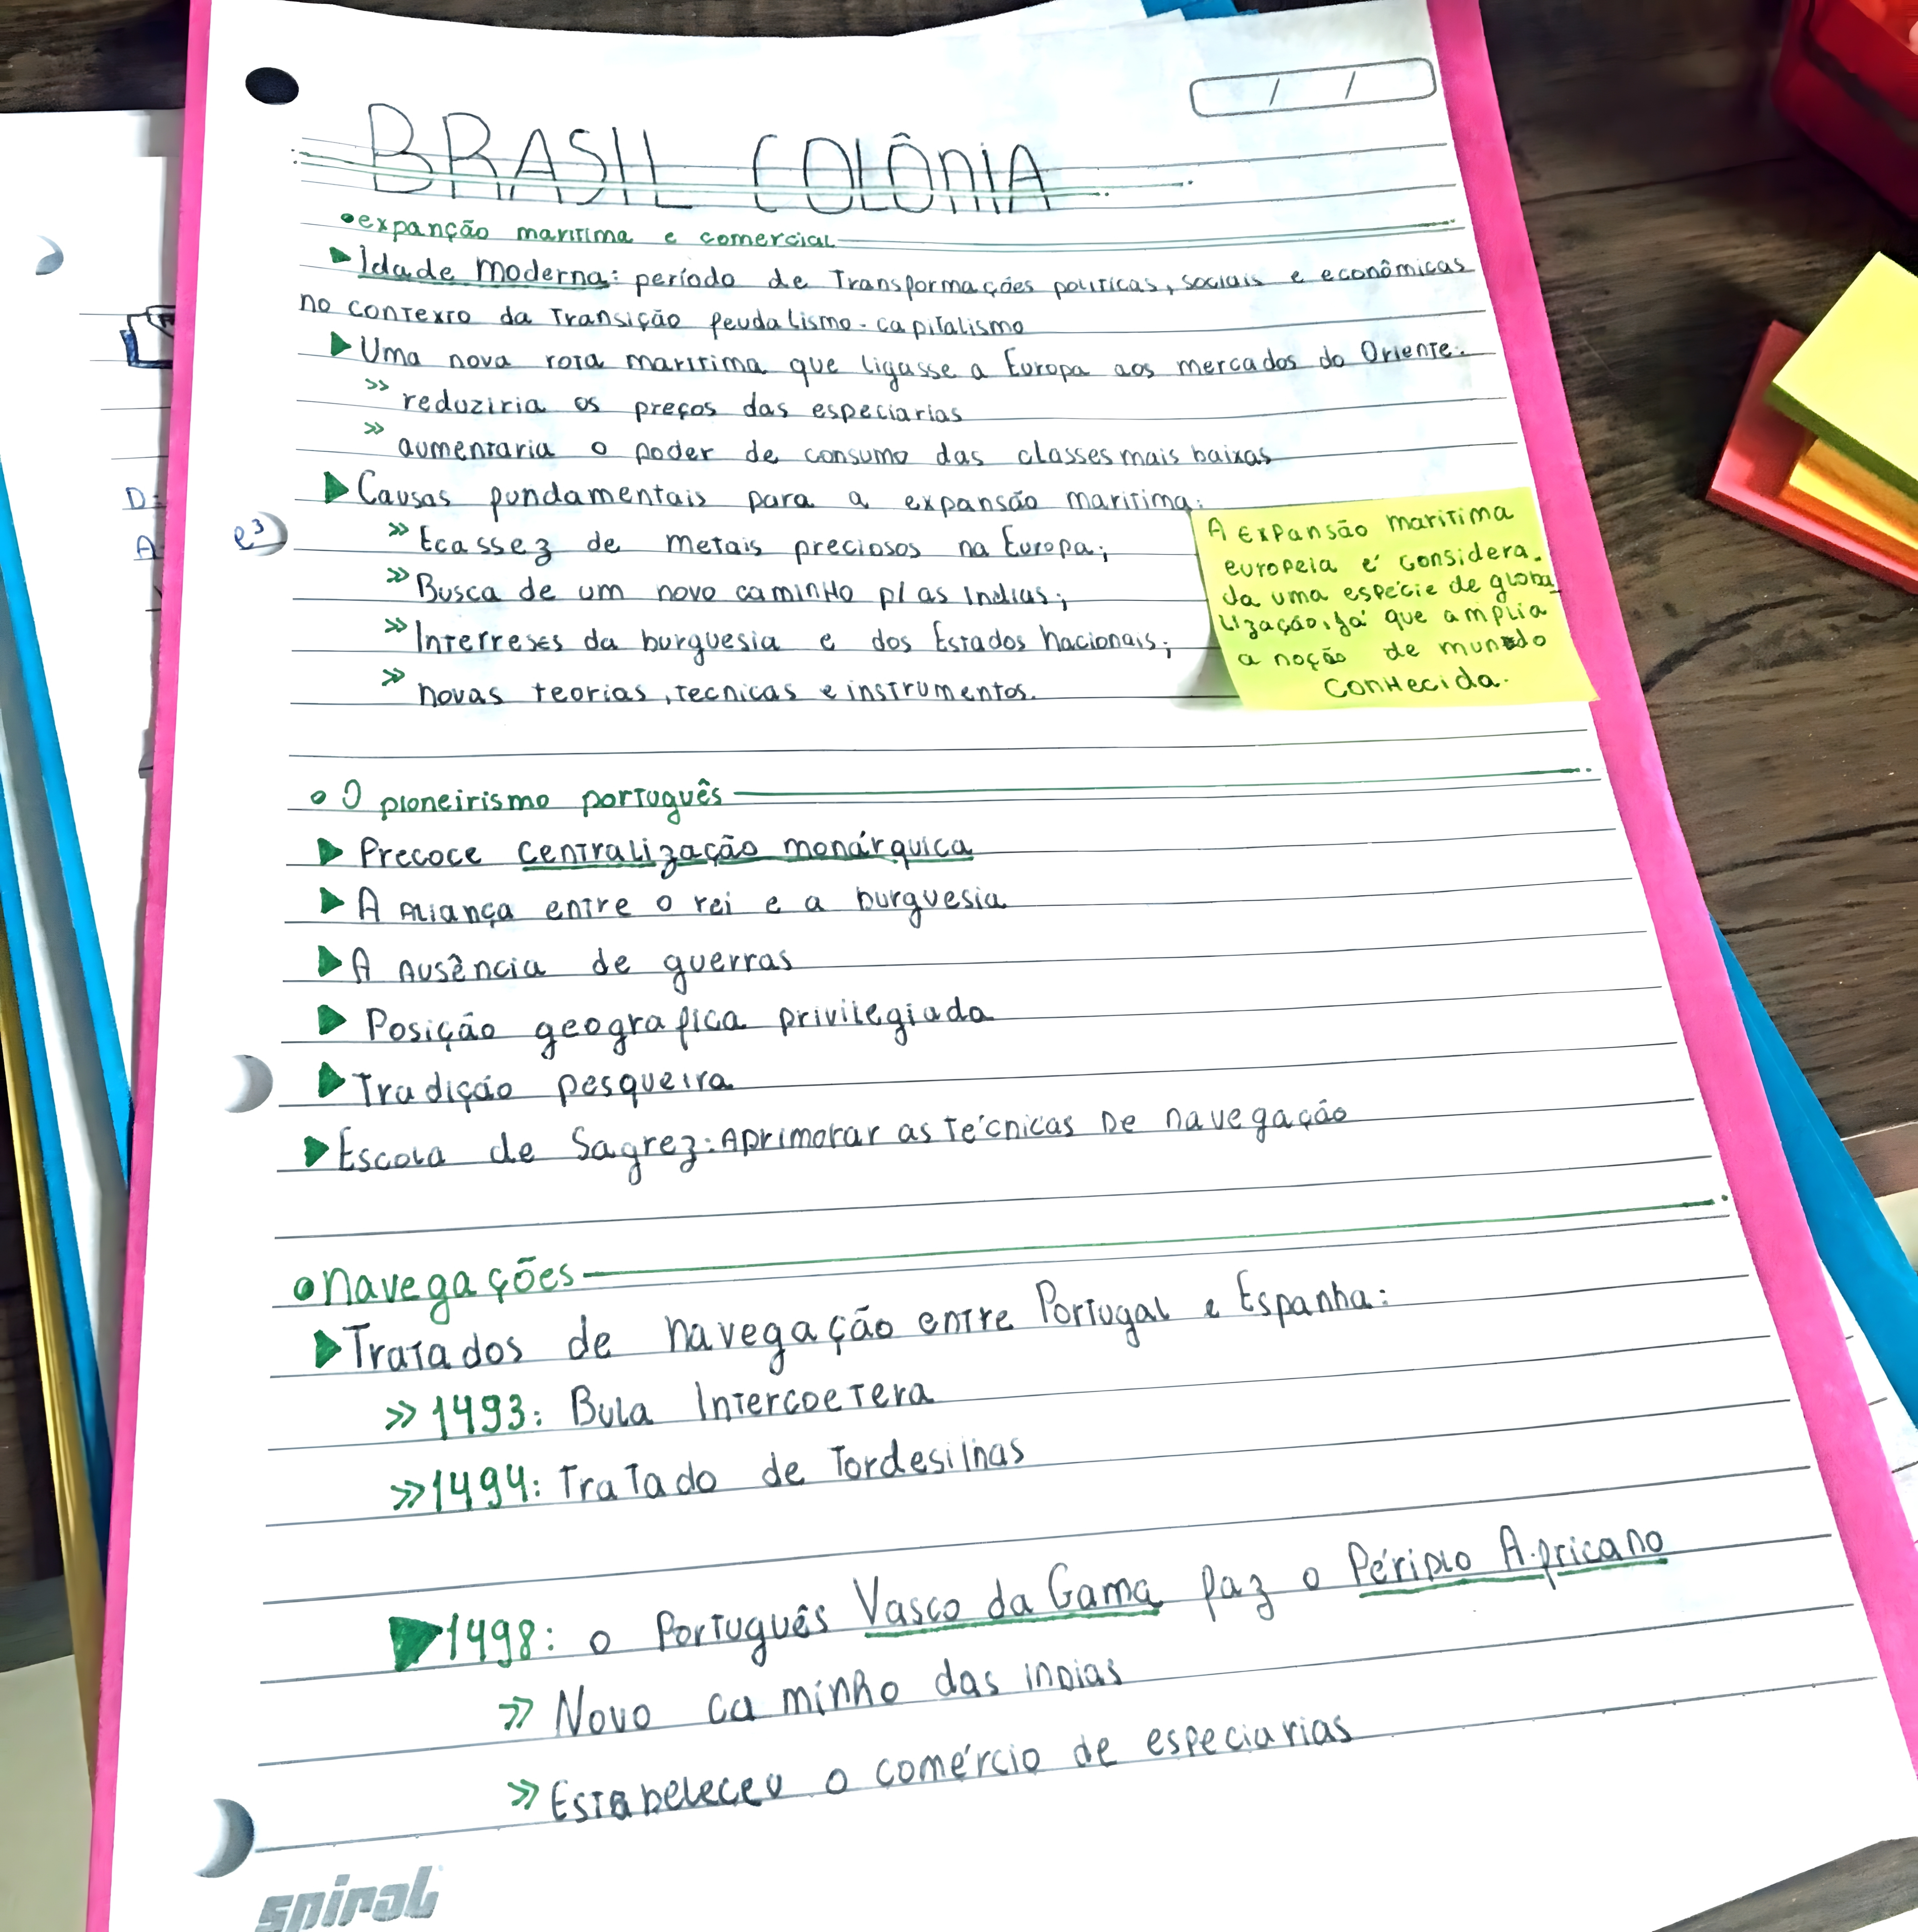 BRASIL COLÔNIA
/ /
•expanção marítima e comercial
▶Idade moderna: período de Transformações políticas, sociais e econômicas
no contexto da Transição feudalismo-capitalismo
▶Uma nova rota marítima que ligasse a Europa aos mercados do Oriente:
» reduziria os preços das especiarias
» aumentaria o poder de consumo das classes mais baixas
▶Causas fundamentais para a expansão marítima:
» Ecassez de metais preciosos na Europa;
» Busca de um novo caminho p/ as Indias;
» Interreses da burguesia e dos Estados nacionais;
» novas teorias, tecnicas e instrumentos.
A Expansão marítima
europeia é considera-
da uma espécie de globa-
lização, já que amplia
a noção de mundo
conhecida.
• O pioneirismo português
▶ Precoce centralização monárquica
▶ A Aliança entre o rei e a burguesia
▶ A Ausência de guerras
▶ Posição geografica privilegiada
▶ Tradição pesqueira
▶ Escola de Sagrez: Aprimorar as técnicas De navegação
• navegações
▶ Tratados de navegação entre Portugal e Espanha:
» 1493: Bula Intercoetera
» 1494: Tratado de Tordesilhas
▶ 1498: o Português Vasco da Gama faz o Périplo Africano
» Novo caminho das inDias
» Estabeleceu o comércio de especiarias
spiral
D:
A
e³